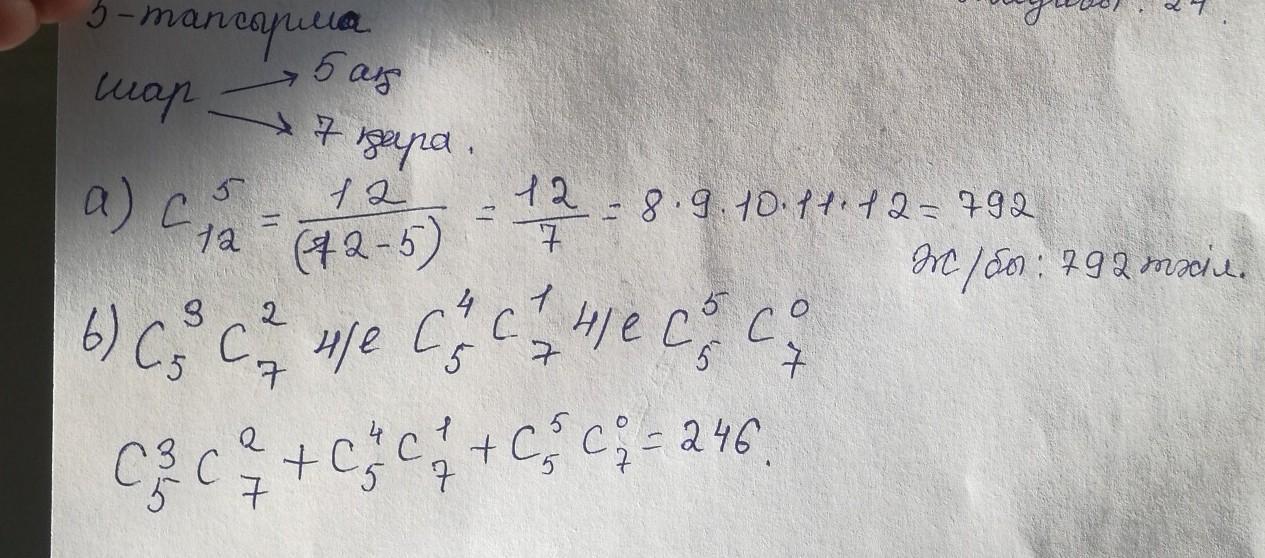 5-тапсырма
24.
шар → 5 ақ
→ 7 қара.
a) C₁₂⁵ = 12/(12-5) = 12/7 = 8·9·10·11·12 = 792
Ж/бы: 792 тәсіл.
b) C₅³ C₇² н/е C₅⁴ C₇¹ н/е C₅⁵ C₇⁰
C₅³ C₇² + C₅⁴ C₇¹ + C₅⁵ C₇⁰ = 246.